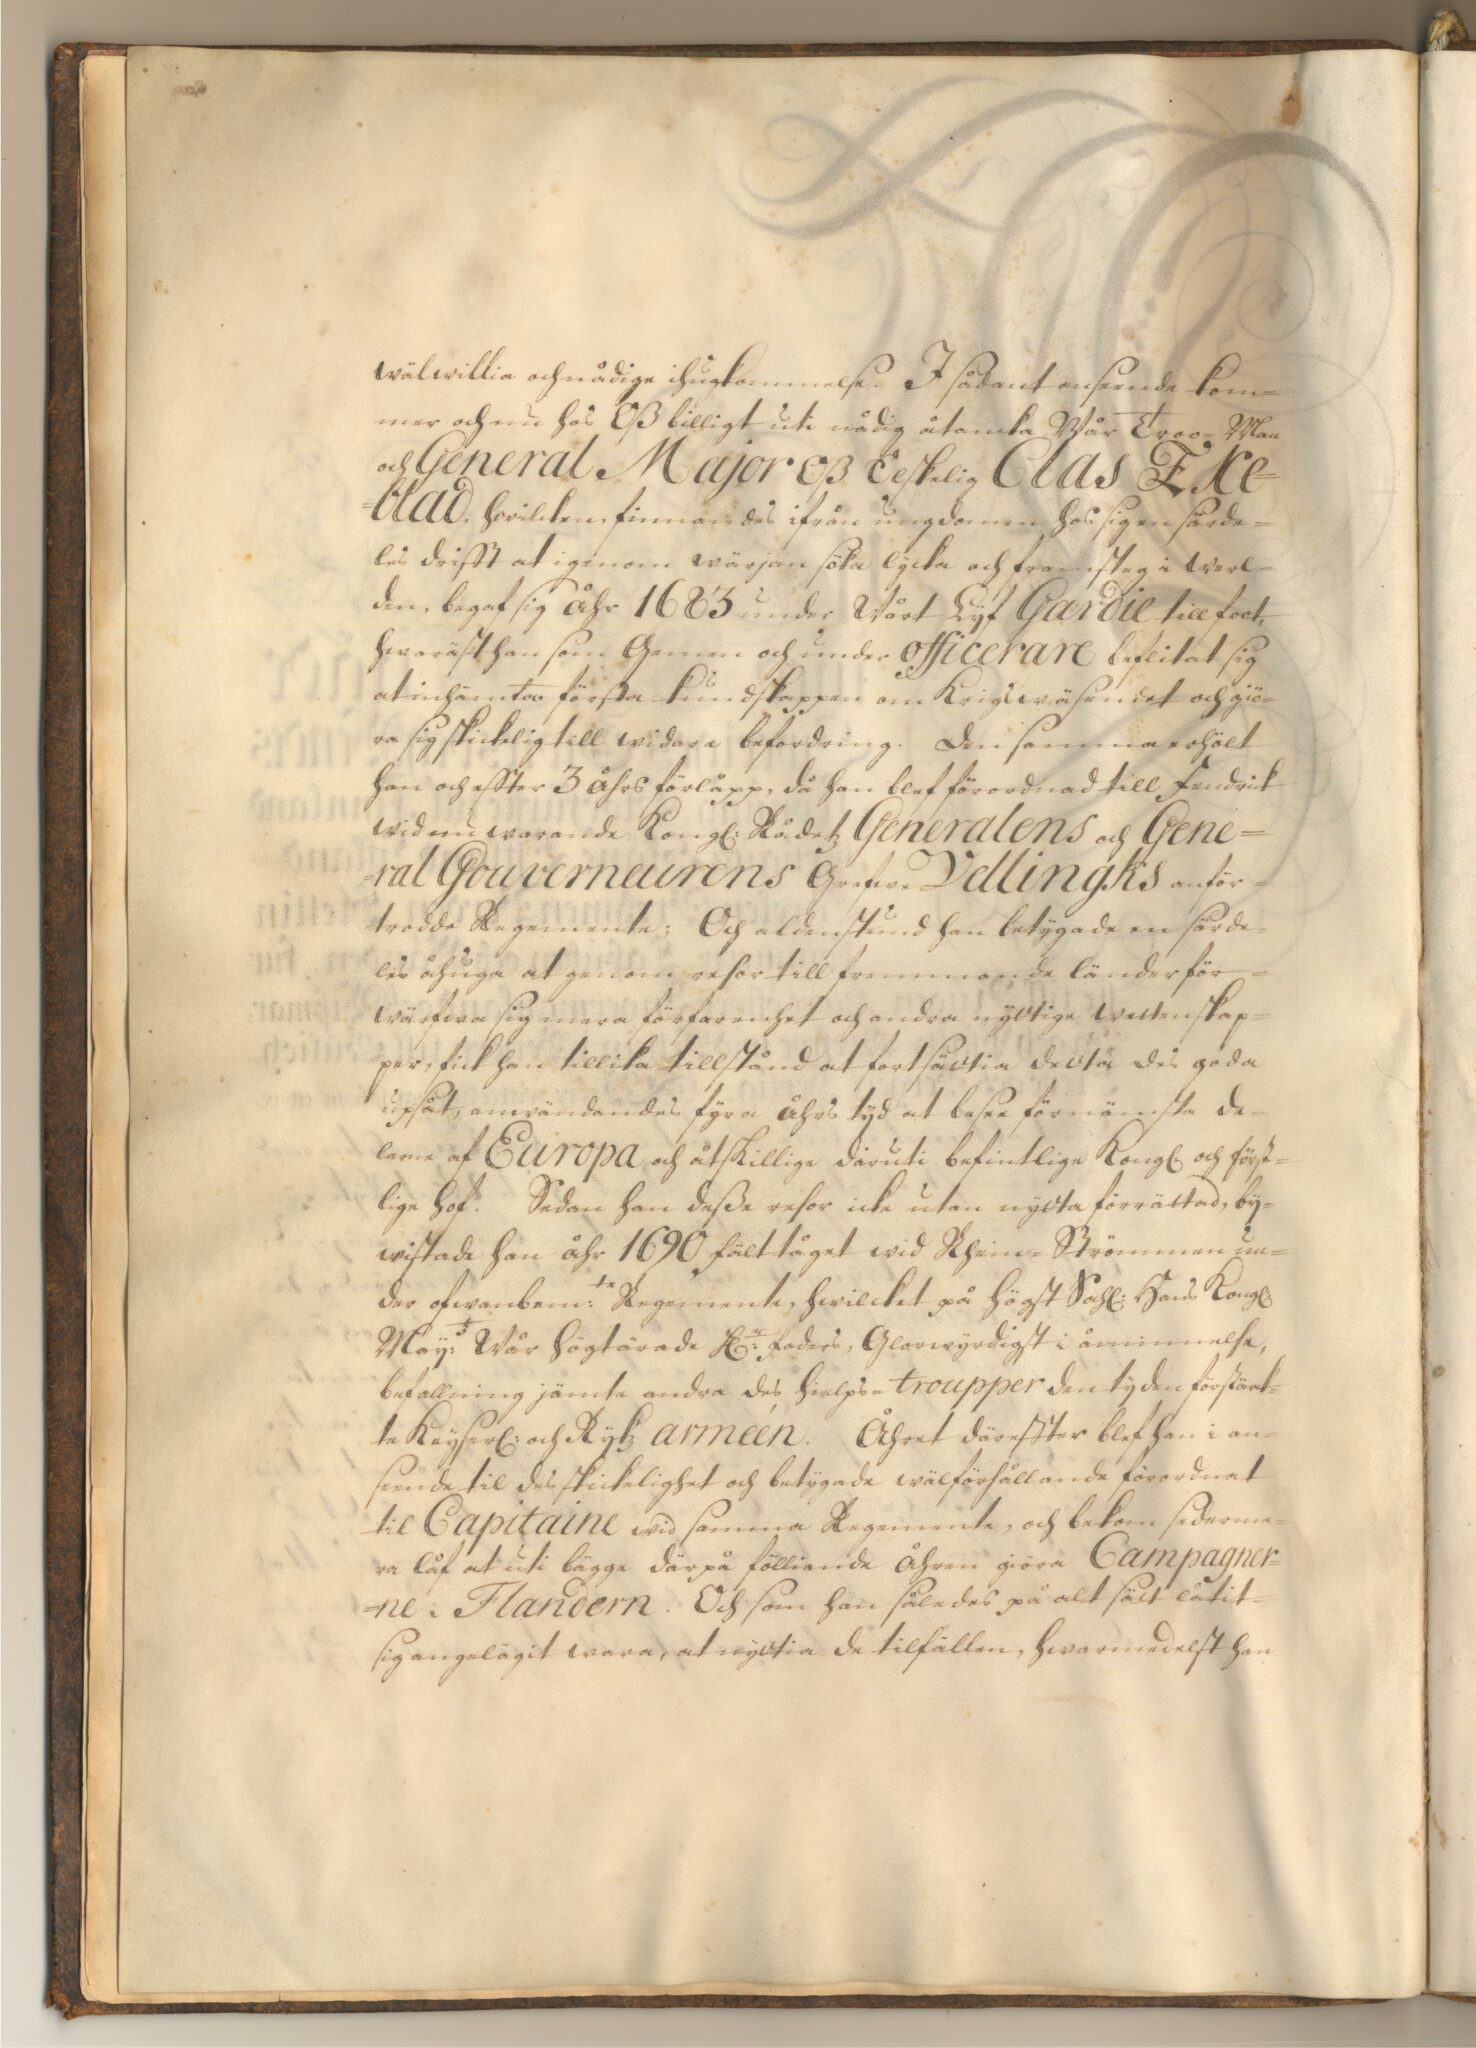 wälwillia och nådige ihugkommelse. I sådant anseende kom=
mer och nu hos Oß billigt uti nådig åtancka Wår Troo=Man
och General Major Oß Elskelig Clas Eke=
=blad, hwilcken, finnandes ifrån ungdomen hos sig en särde=
les drifft at igenom wärjan söka lycka och framsteg i werl=
den, begaf sig åhr 1683 under Wårt Lyf Gardie till foot,
hwaräst han som Gemen och under officerare beflitat sig
at inhämta första kundskappen om Krigswäsendet och giö=
ra sig skickelig till widare befordring. Den samma erhölt
han och effter 3 åhrs förlåpp, då han blef förordnad till Fendrick
wid nu warande Kongl: Rådetz Generalens och Gene=
=ral Gouverneurens Grefwe Vellingks anför=
trodde Regemente; Och aldenstund han betygade en särde=
les åhuga at genom resor till fremmande länder för=
wärfwa sig mera förfarenhet och andra nyttige wettenskap=
per, fick han tillika tillstånd at fortsättia detta des goda
upsåt, anwändandes fyra åhrs tyd at besee förnämsta de=
larne af Europa och åtskillige däruti befintlige Kongl: och först=
lige hof. Sedan han deße resor icke utan nytta förrättad, by=
wistade han åhr 1690 fälttåget wid Rhein=Strömmen un=
der ofwanbem:te Regemente, hwilcket på högst Sahl: Hans Kongl:
May:tz Wår högtärade H: faders, Glorwyrdigst i åminnelse,
befallning jämte andra des hielps=troupper den tyden förstärk=
te Keyserl: och Rykz arméen. Åhret däreffter blef han i an=
seende til des skickelighet och betygade wälförhållande förordnat
til Capitaine wid samma Regemente, och bekom sederme=
ra låf at uti bägge därpå fölliande åhren giöra Campagner=
=ne i Flandern. Och som han således på alt sätt låtit
sig angelägit wara, at nyttia de tilfällen, hwarmedelst han